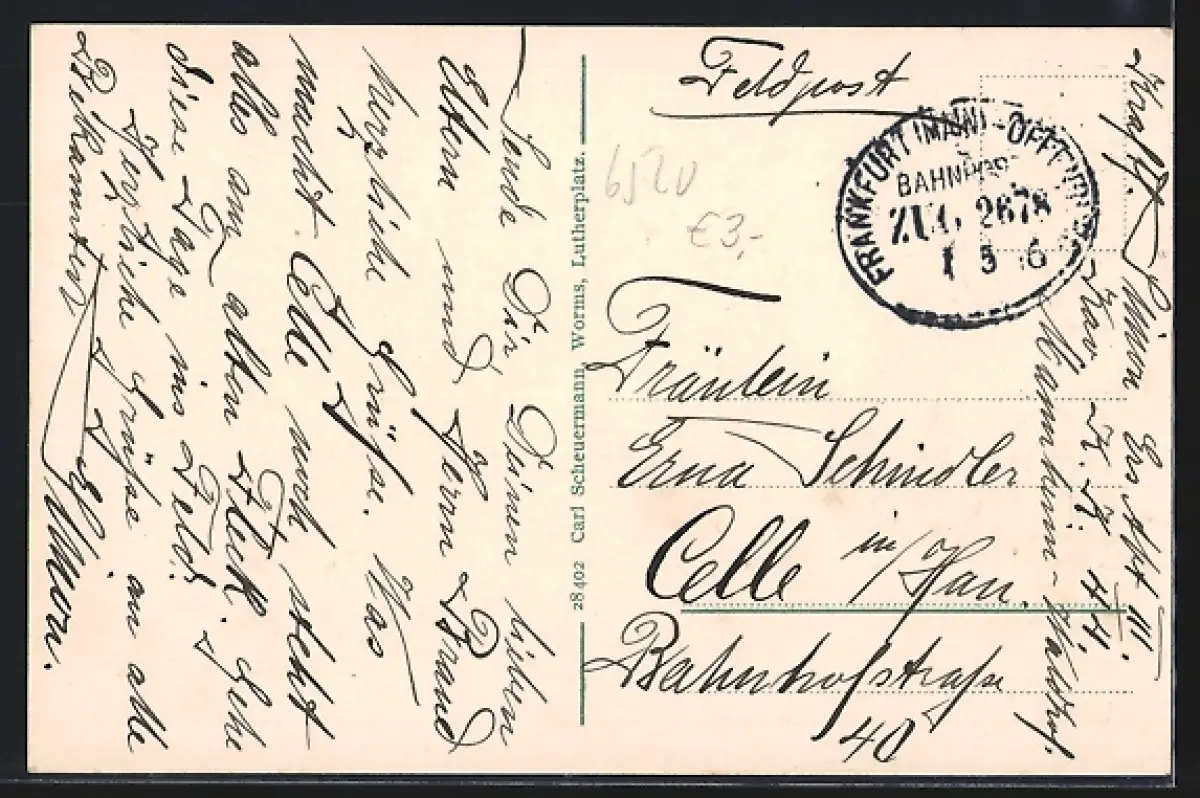 Sende Dir Deinen lieben
Eltern und Herrn Brand
herzliche Grüße. Was
macht Celle noch steht
alles am alten Fleck. Gehe
diese Tage ins Feld.
Herzliche Grüsse an alle
Bekannten
28402 Carl Scheuermann, Worms, Lutherplatz.
Feldpost
FRANKFURT (MAIN) - OFFENB
BAHNPOS
ZUG 2678
1 5 6
6520
€3,-
Fräulein
Erna Schindler
Celle in/Han.
Bahnhofstraße
40
Ers. Abt III.
44.
Mannheim-